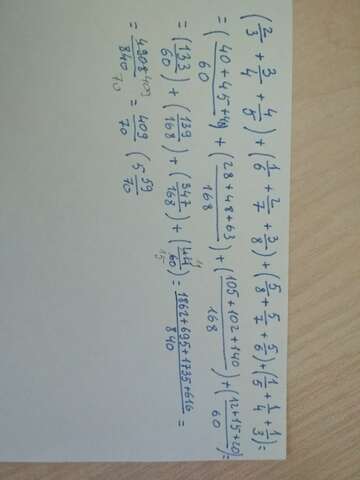 (2/3 + 3/4 + 4/5) + (1/6 + 2/7 + 3/8) + (5/8 + 5/7 + 5/6) + (1/5 + 1/4 + 1/3) =
= (40+45+48/60) + (28+48+63/168) + (105+102+140/168) + (12+15+20/60) =
= (133/60) + (139/168) + (347/168) + (44/60) = 1862+695+1735+616/840 =
= 4908/840 = 409/70 (5 59/70)